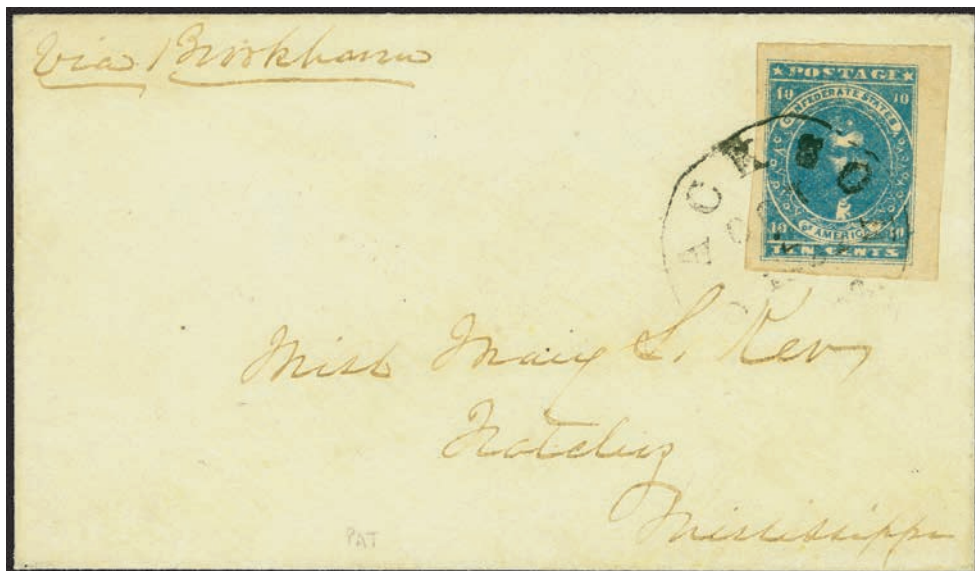 Via Brookhaven
★ POSTAGE ★
10 10
CONFEDERATE STATES
OF AMERICA
10 10
TEN CENTS
JACKSO
Miss Mary S.
Natchez
Mississippi
PAT